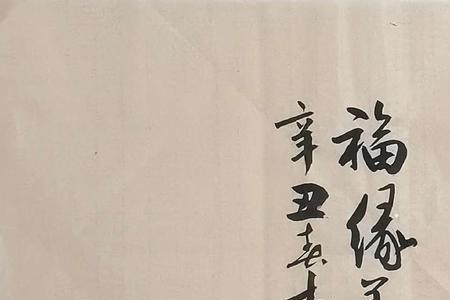 福缘
辛丑春